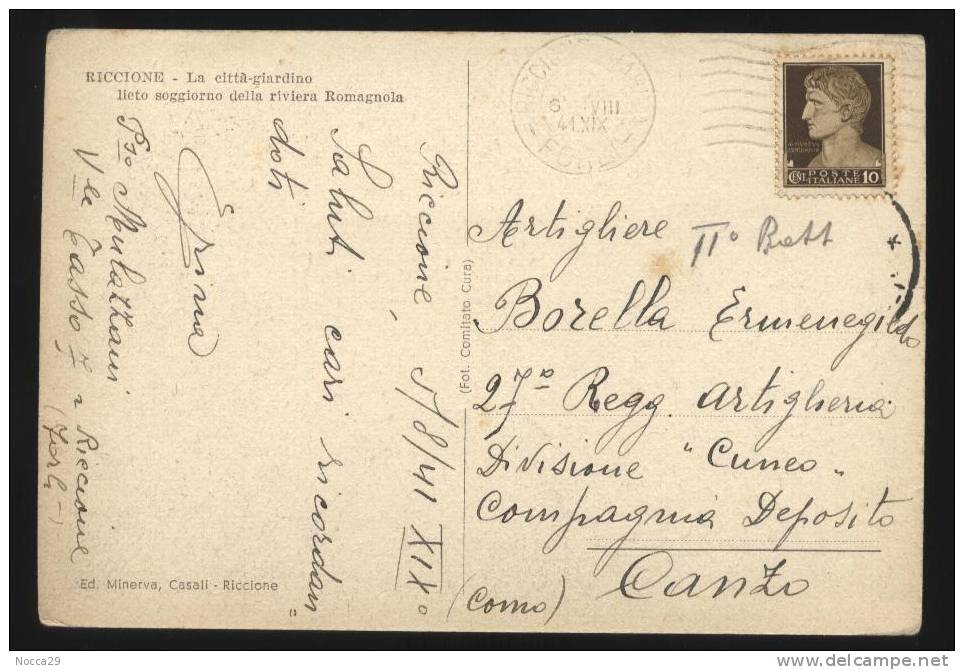 RICCIONE - La città-giardino
lieto soggiorno della riviera Romagnola
Riccione, 5/8/41 XIX°
Saluti cari ricordan
doti
P.so Mulazzani
Vle Tasso
Riccione
(Forlì)
Ed. Minerva, Casali - Riccione
(Fot. Comitato Cura)
6 VIII
41 XIX
POSTE
ITALIANE
CENT. 10
Artigliere II° Batt
Borella Ermenegildo
27° Regg. Artiglieria
Divisione "Cuneo"
Compagnia Deposito
Canzo
(Como)
Nocca29
www.delcampe.net